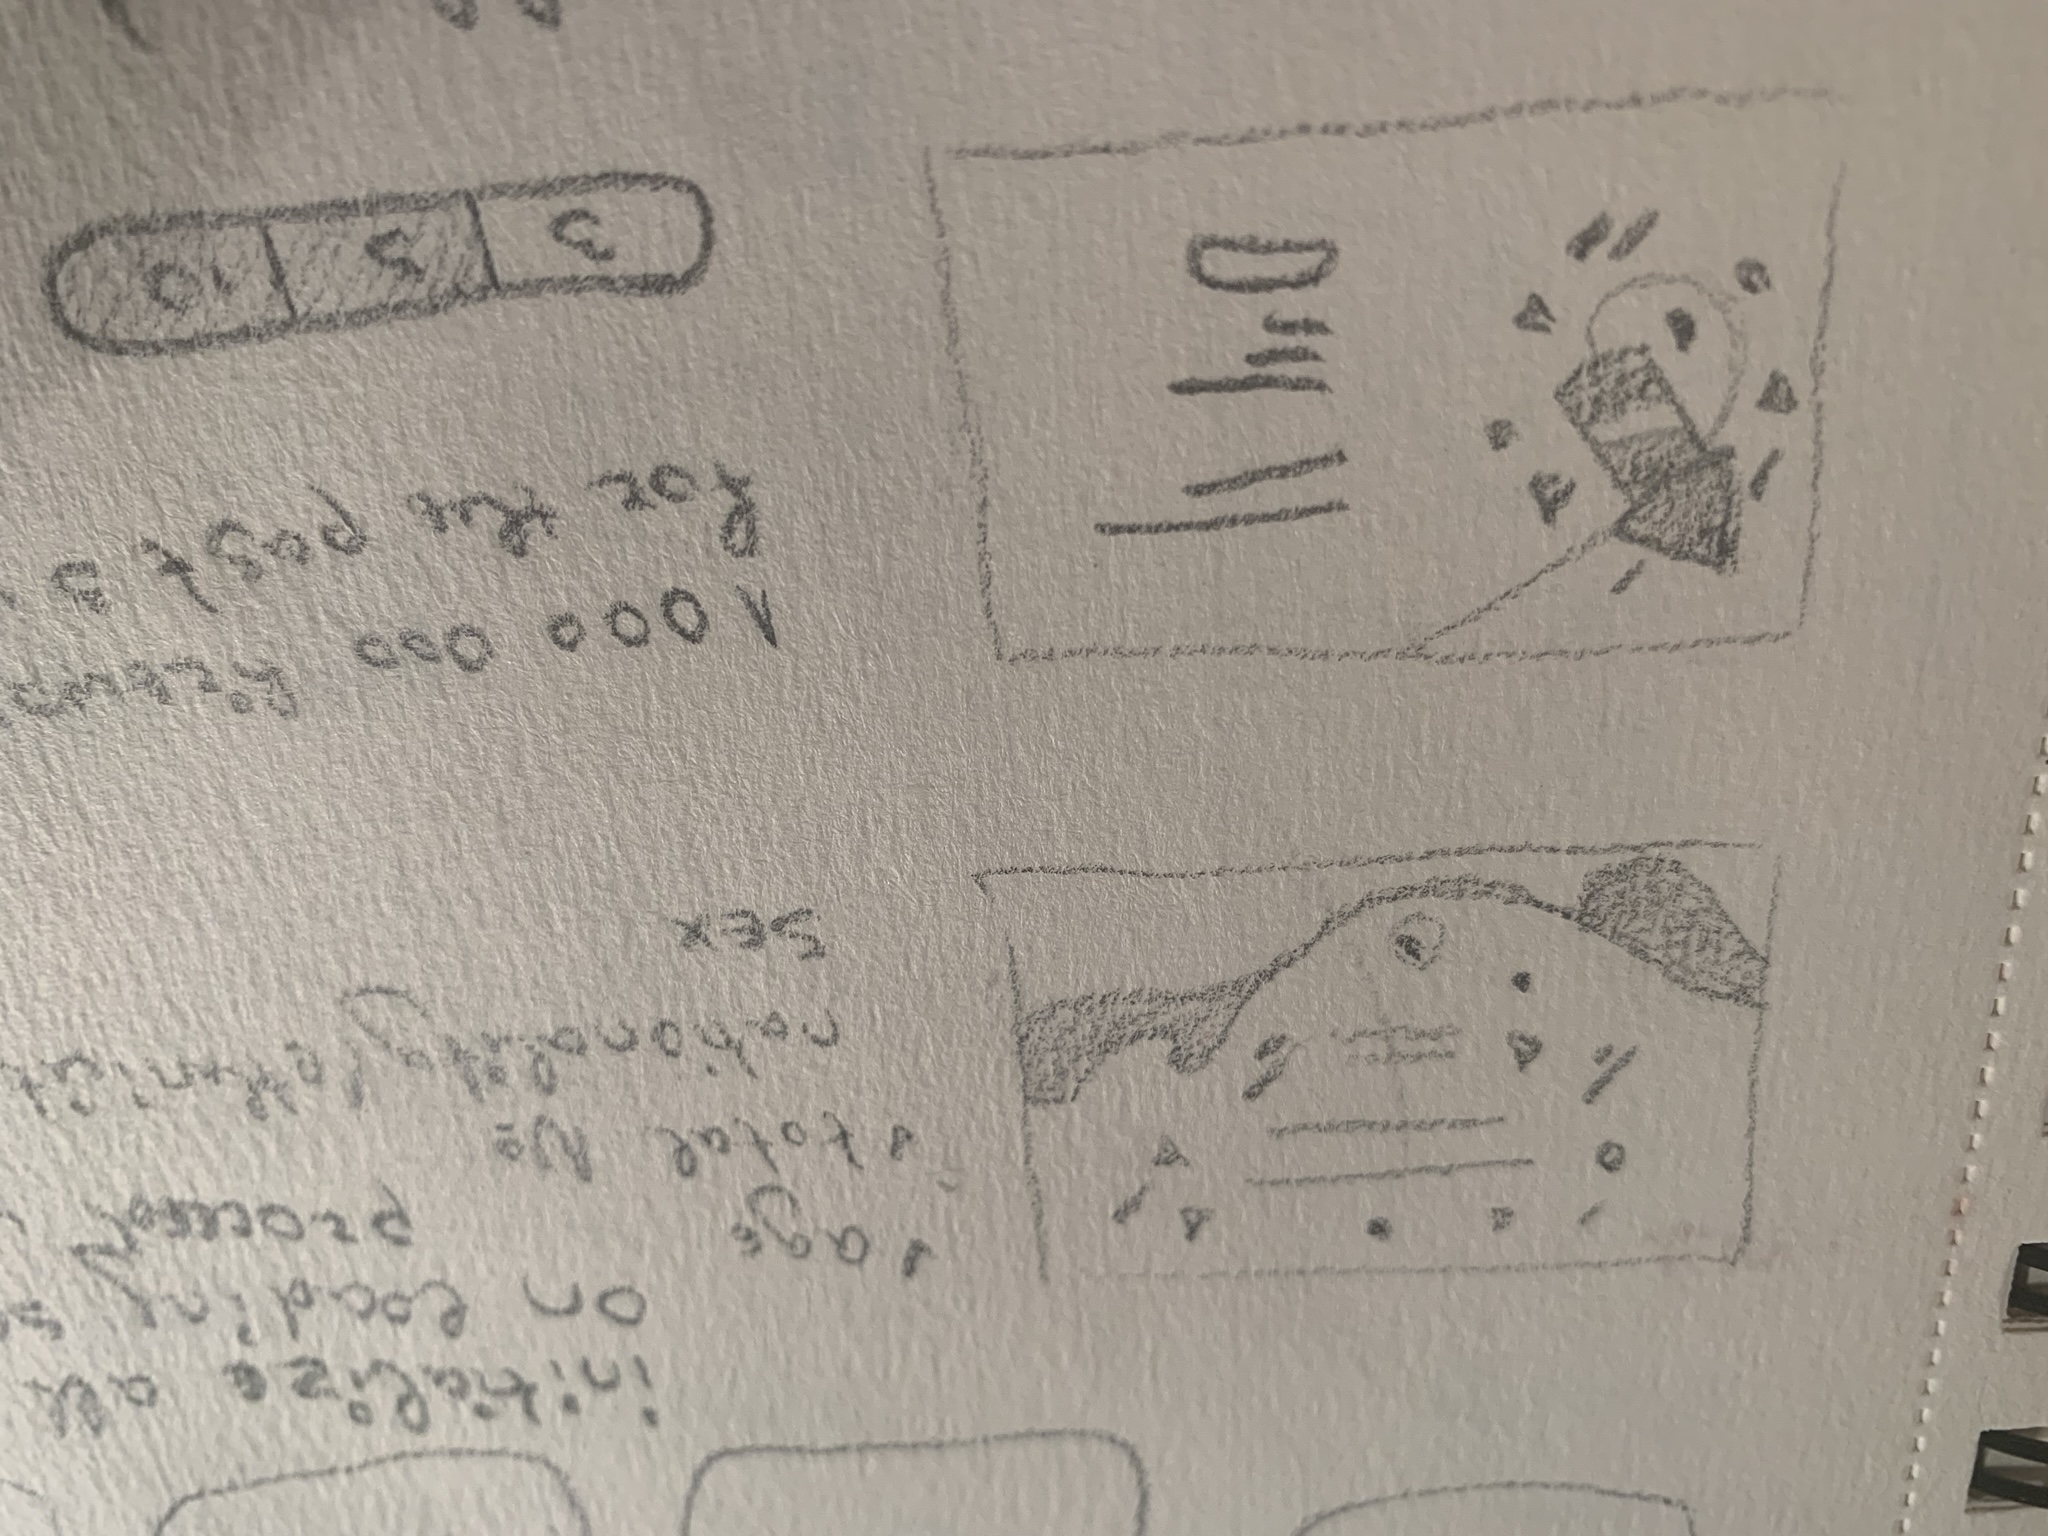 initialize all
on loading
process
age
total №
nationality/ethnicit
sex
1 000 000
for the past 3
3 5 10